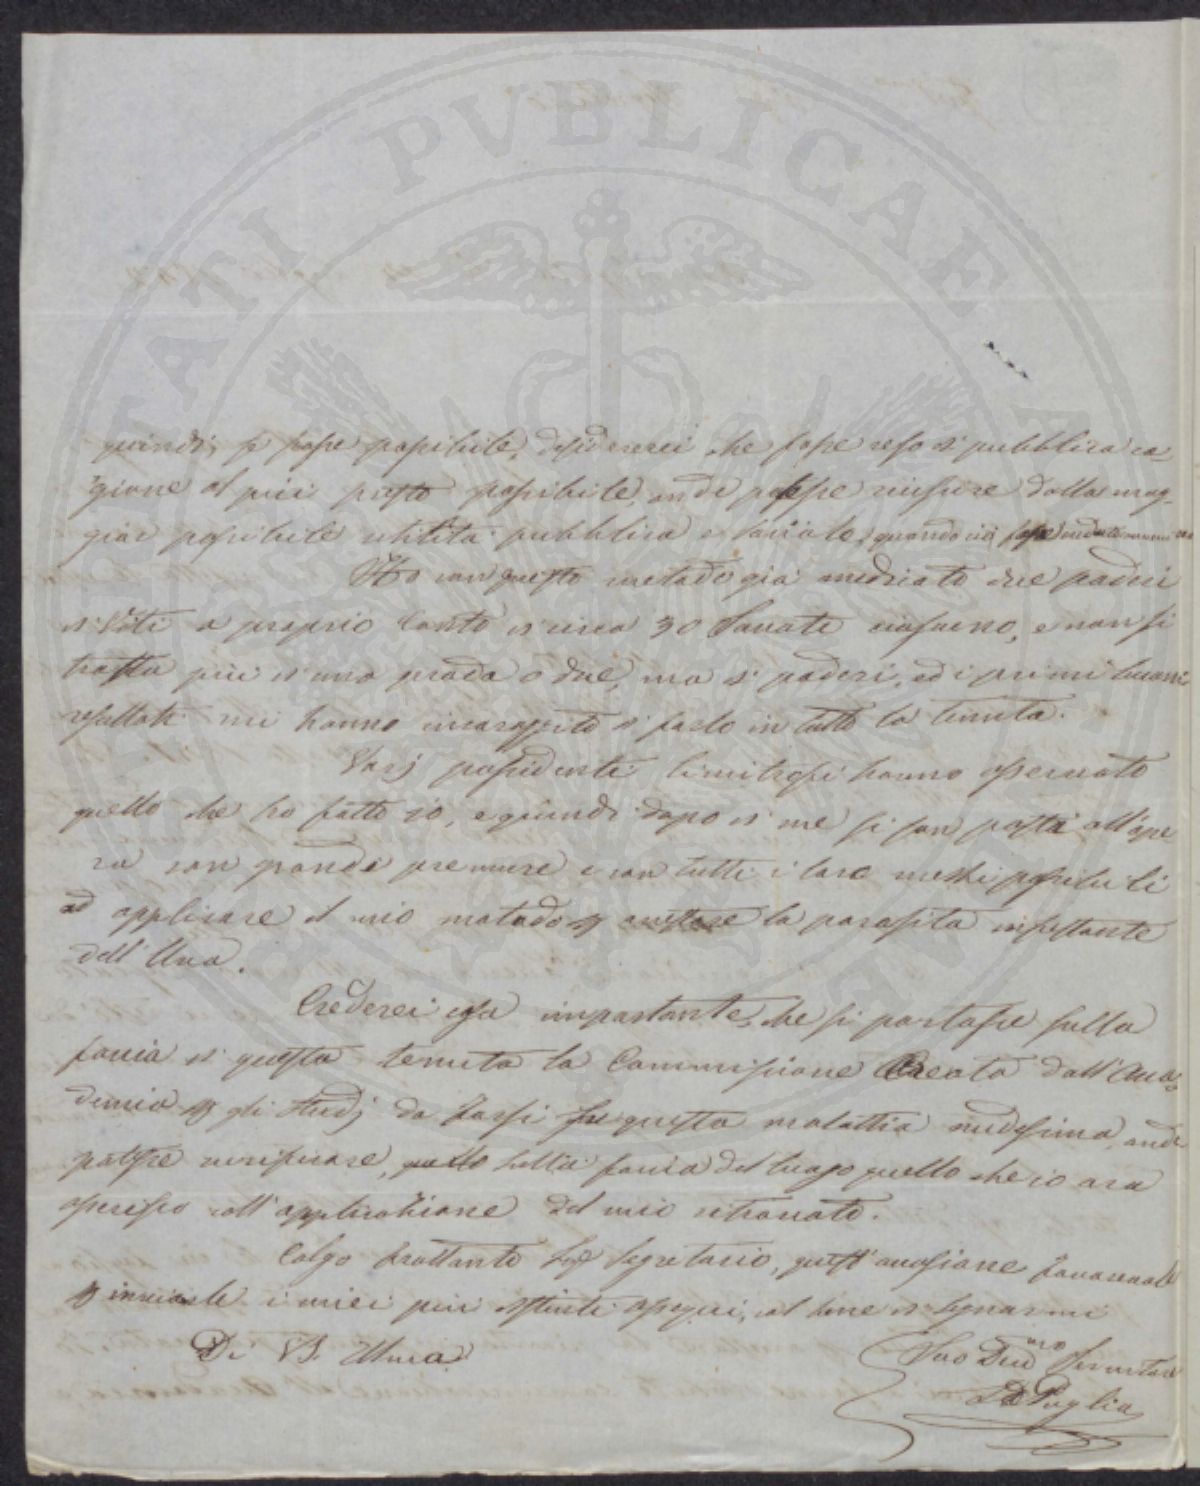 quindi, se fosse possibile, desidererei che fosse reso di pubblica ca-
gione al più presto possibile, onde potesse riuscire della mag-
gior possibile utilità pubblica e sociale, quando ciò fosse
Ho con questo metodo già medicato due poderi
di Viti a proprio conto di circa 30 Saccate ciascuno, e non si
tratta più di una proda o due, ma di poderi, ed i primi buoni
resultati mi hanno incoraggito di farlo in tutta la tenuta.
Varj possidenti limitrofi hanno osservato
quello che ho fatto io, e quindi dopo di me si son posti all'ope-
ra con grande premura e con tutti i loro mezzi possibili
ad applicare il mio metodo p arrestare la parasita infestante
dell'Uva.
Crederei cosa importante, che si portasse sulla
faccia di questa tenuta la Commissione Creata dall'Acca-
demia p gli studj da farsi su questa malattia medesima, onde
potesse verificare, sulla faccia del luogo quello che io ora
asserisco coll'applicazione del mio ritrovato.
Colgo frattanto Sig Segretario, quest'occasione favorevole
p inviarle i miei più distinti ossequi, col bene di segnarmi
Di V. S. Illma
Suo Devmo Servitore
D Puglia
PUBLICAE